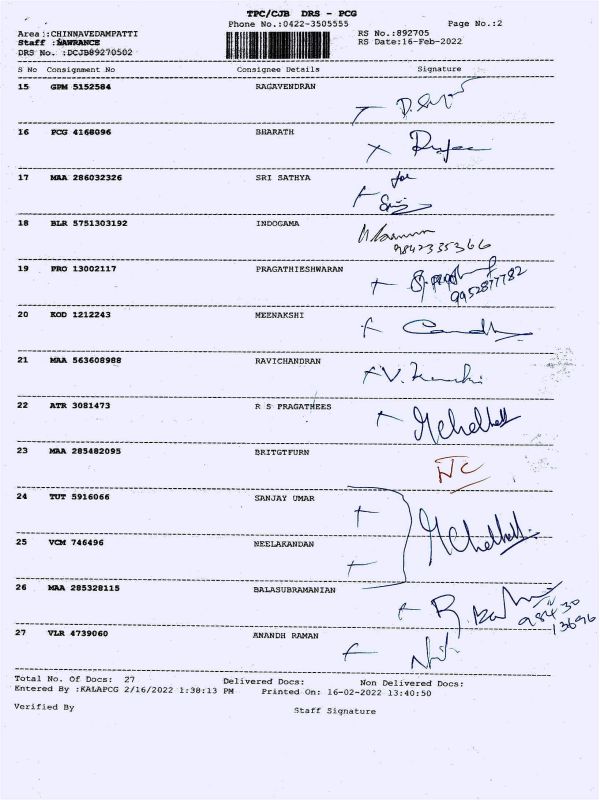 TPC/CJB DRS - PCG
Phone No.:0422-3505555 Page No.:2
Area :CHINNAVEDAMPATTI RS No.:892705
Staff :LAWRANCE RS Date:16-Feb-2022
DRS No. :DCJB89270502
S No Consignment No Consignee Details Signature
15 GPM 5152584 RAGAVENDRAN
16 PCG 4168096 BHARATH
17 MAA 286032326 SRI SATHYA for
18 BLR 5751303192 INDOGAMA
9842335366
19 PRO 13002117 PRAGATHIESHWARAN
9952877782
20 KOD 1212243 MEENAKSHI
21 MAA 563608988 RAVICHANDRAN
22 ATR 3081473 R S PRAGATHEES
23 MAA 285482095 BRITGTFURN NC
24 TUT 5916066 SANJAY UMAR
25 VCM 746496 NEELAKANDAN
26 MAA 285328115 BALASUBRAMANIAN
98430
13696
27 VLR 4739060 ANANDH RAMAN
Total No. Of Docs: 27 Delivered Docs: Non Delivered Docs:
Entered By :KALAPCG 2/16/2022 1:38:13 PM Printed On: 16-02-2022 13:40:50
Verified By Staff Signature